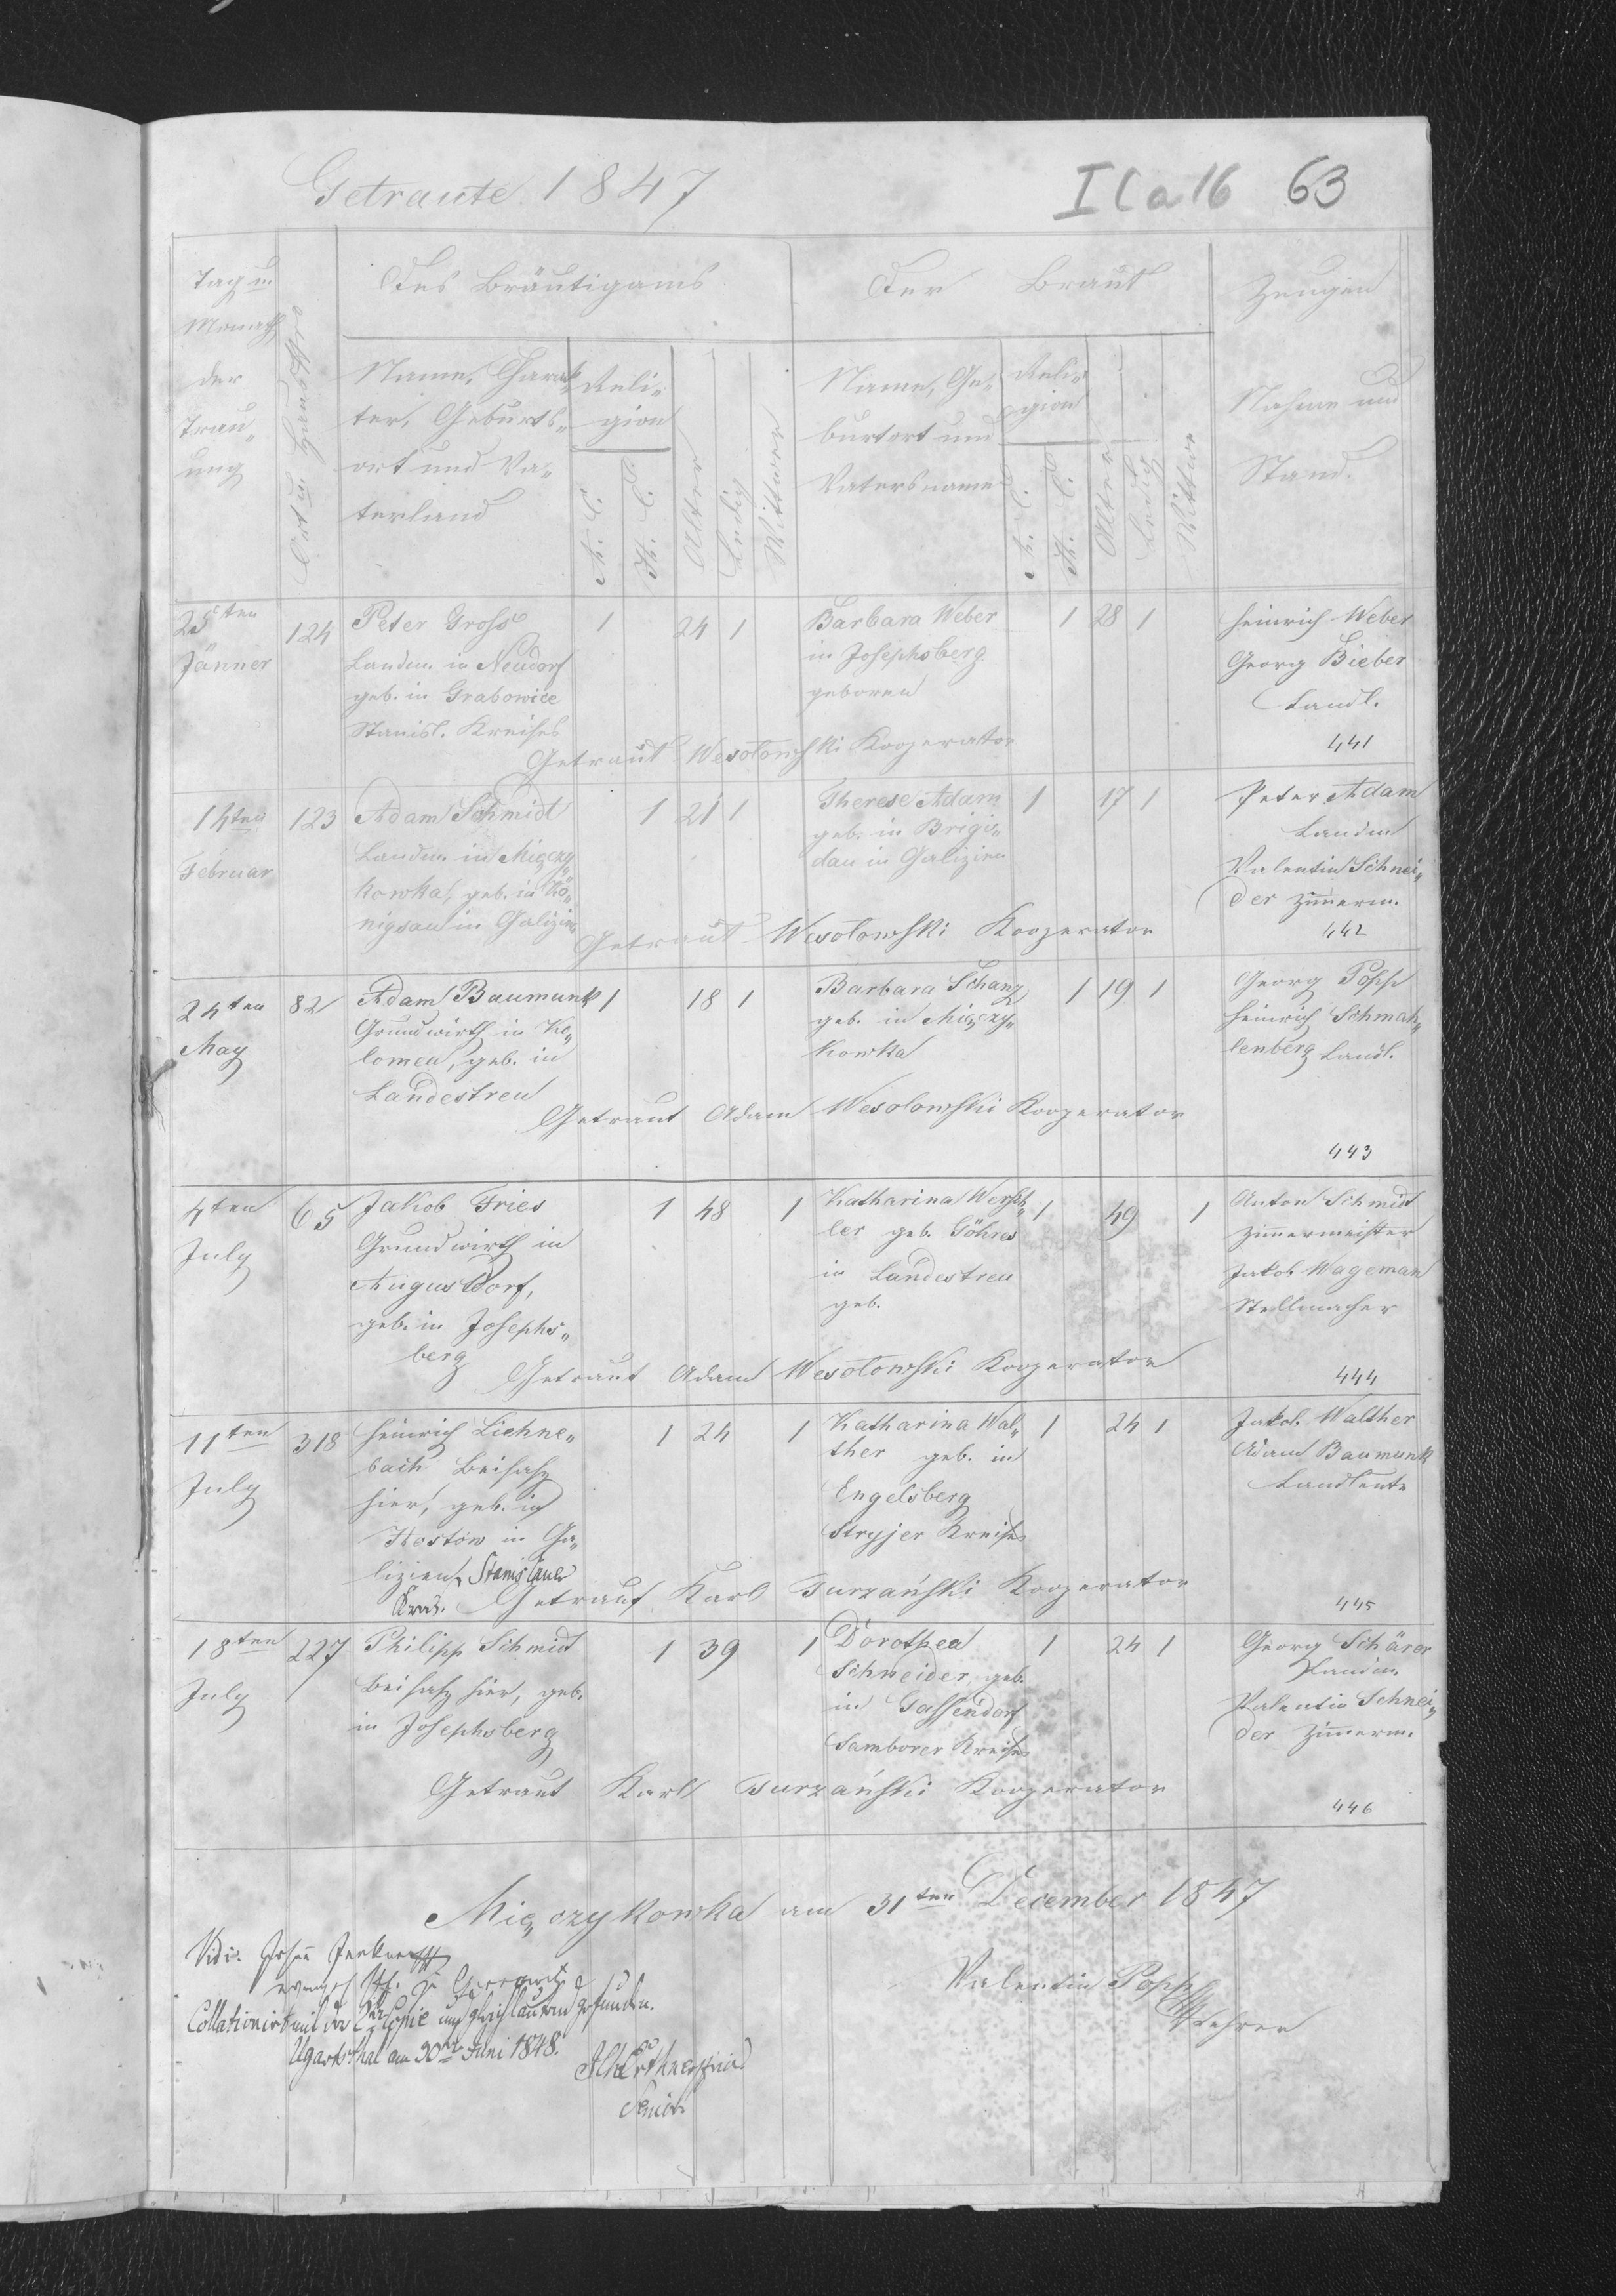 Getraute 1847
I C a 16 63
Tag u
Monath
der
Trau„
ung
Ort u. Haus Nro
Des Bräutigams
Name, Charak„
ter, Geburts„
ort und Va„
terland
Reli„
gion
A. C.
H. C.
Alter
Ledig
Wittwer
Der Braut
Name, Ge„
burtort und
Vatersname
Reli„
gion
A. C.
H. C.
Alter
Ledig
Wittwe
Zeugen
Nahme und
Stand.
25ten
Jänner
124
Peter Gross
Landm. in Neudorf
geb. in Grabowice
Stanisl. Kreises
1 24 1
Barbara Weber
in Josephsberg
geboren
1 28 1
Heinrich Weber
Georg Bieber
Landl.
Getraut Wesolowski Kooperator
441
14ten
Februar
123
Adam Schmidt
Landm. in Mięczy„
kowka, geb. in Kö„
nigsau in Galizien
1 21 1
Therese Adam
geb. in Brigi„
dau in Galizien
1 17 1
Peter Adam
Landm
Valentin Schnei„
der Zimmerm.
Getraut Wesolowski Kooperator
442
24ten
May
82
Adam Baumunk
Grundwirth in Ko„
lomea, geb. in
Landestreu
1 18 1
Barbara Schanz
geb. in Mięczy„
kowka
1 19 1
Georg Popp
Heinrich Schmah„
lenberg Landl.
Getraut Adam Wesolowski Kooperator
443
4ten
July
65
Jakob Fries
Grundwirth in
Augustdorf,
geb. in Josephs„
berg
1 48 1
Katharina Wersch„
ler geb. Göhres
in Landestreu
geb.
1 49 1
Anton Schmidt
Zimmermeister
Jakob Wageman
Stellmacher
Getraut Adam Wesolowski Kooperator
444
11ten
July
318
Heinrich Liehne„
bach Beisass
hier, geb. in
Hostow in Ga„
lizien, Stanislauer
1 24 1
Katharina Wal„
ther geb. in
Engelsberg
Stryjer Kreises
1 24 1
Jakob Walther
Adam Baumunk
Landleute
Getraut Karl Turzański Kooperator
445
18ten
July
227
Philipp Schmidt
Beisass hier, geb.
in Josephsberg
1 39 1
Dorothea
Schneider, geb.
in Gassendorf
Samborer Kreises
1 24 1
Georg Schärer
Landm.
Valentin Schnei„
der Zimmerm.
Getraut Karl Turzański Kooperator
446
Mięczykowka am 31ten December 1847
Valentin Popp
Lehrer
Vidi.
Collationirt mit der Copie und gleichlautend gefunden.
Ugartsthal am 30ten Juni 1848.
Senior